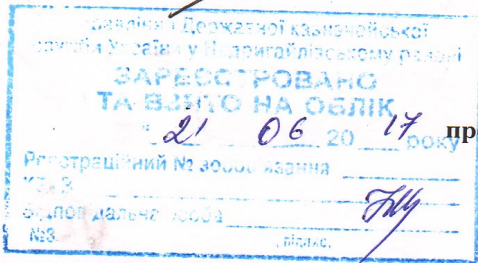 Державної казначейської
служби України у Недригайлівському районі
ЗАРЕЄСТРОВАНО
ТА ВЗЯТО НА ОБЛІК
"21 06 20 17 року
пр
Реєстраційний № зобов'язання
Відповідальна особа
№3